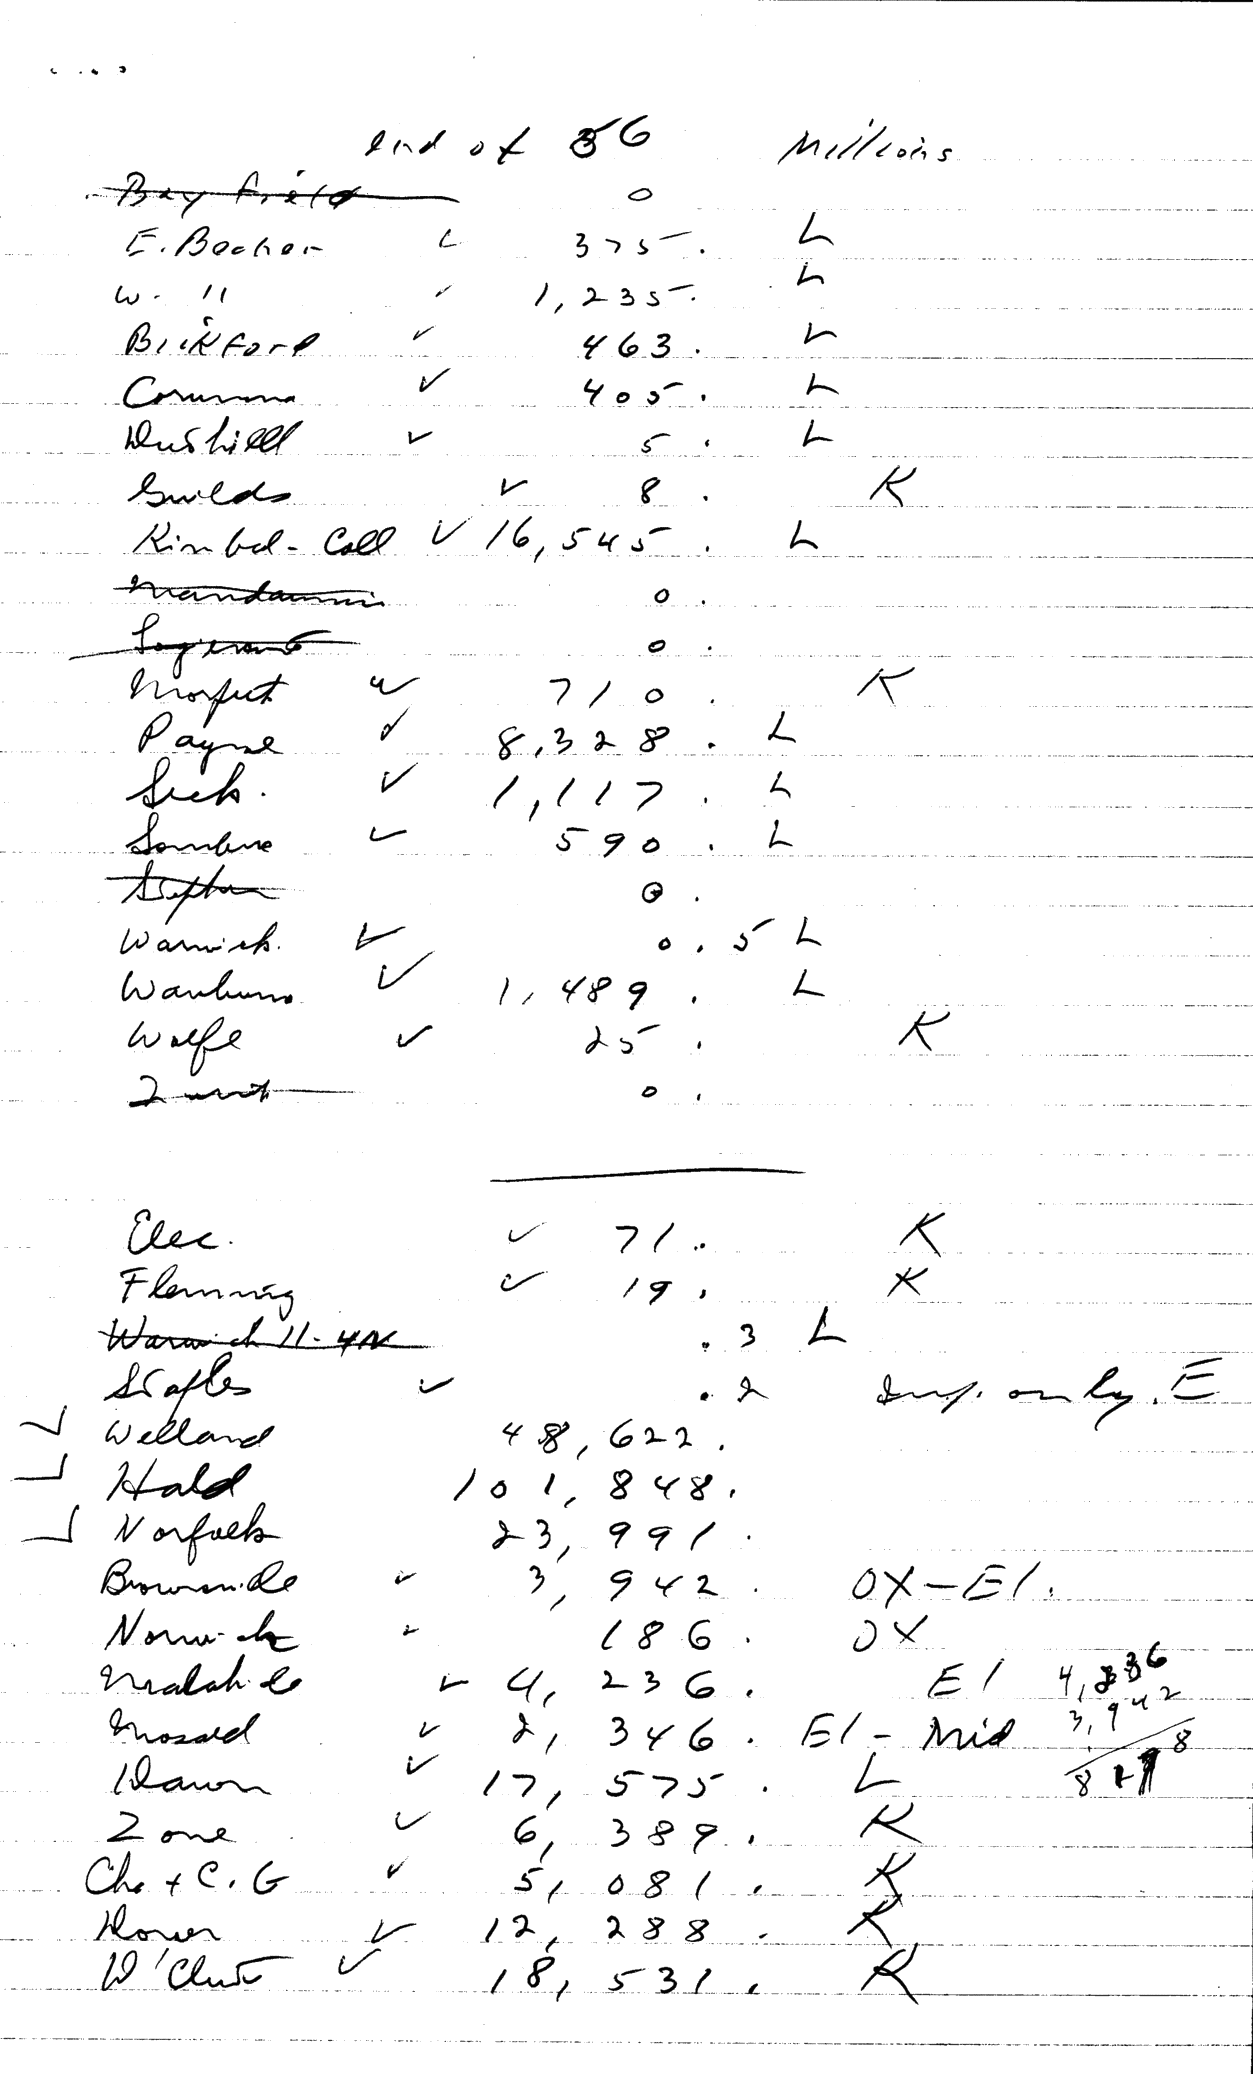 end of 56 Millions
Bayfield 0
E. Becher ✓ 375. L
W. 11 ✓ 1,235. L
Bickford ✓ 463. L
Corunna ✓ 405. L
✓ 5. L
Guilds ✓ 8. K
Kimbal-Coll ✓ 16,545. L
Mandaumin 0.
0.
Morpeth ✓ 710. K
Payne ✓ 8,328. L
Seck. ✓ 1,117. L
Sombra ✓ 590. L
0.
Warwick. ✓ 0.5 L
Waubuno ✓ 1,489. L
Wolfe ✓ 25. K
Zurich 0.
Elec. ✓ 71. K
Flemming ✓ 19. K
Warwick 11-4N .3 L
Staples ✓ .2 only. E
✓ Welland 48,622.
✓ Hald 101,848.
✓ Norfolk 23,991.
Brownsville ✓ 3,942. OX-El.
Norwich ✓ 186. OX
Malahide ✓ 4,236. El 4,236
3,942
Mosard ✓ 2,346. El-Mid 8178
Dawn ✓ 17,575. L
Zone ✓ 6,389. K
Cha + C.G ✓ 5,081. K
Dover ✓ 12,288. K
D'Clute ✓ 18,531. K